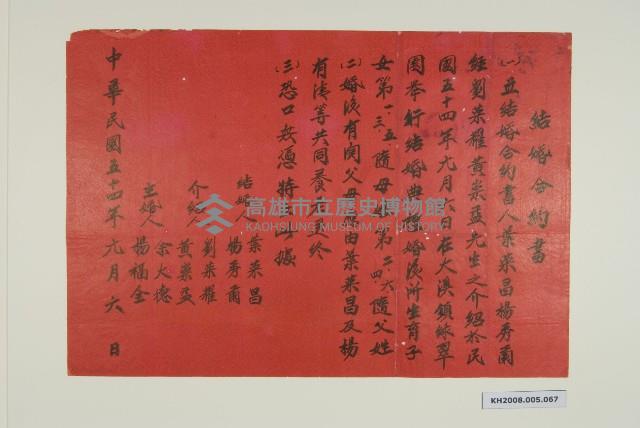 結婚合約書
(一)立結婚合約書人葉荣昌楊秀蘭
經劉荣耀黄荣益先生之介紹於民
國五十四年九月六日在大溪鎮綠翠
園举行結婚典 婚後所生育子
女第一.三.五隨母 第二.四.六隨父姓
(二)婚後有関父母 由葉荣昌及楊
有 等共同養 終
(三)恐口無憑特 據
結婚 葉荣昌
楊秀蘭
介紹人 劉荣耀
黄荣益
主婚人 余大德
楊福全
中華民國五十四年九月六日
高雄市立歷史博物館
KAOHSIUNG MUSEUM OF HISTORY
KH2008.005.067